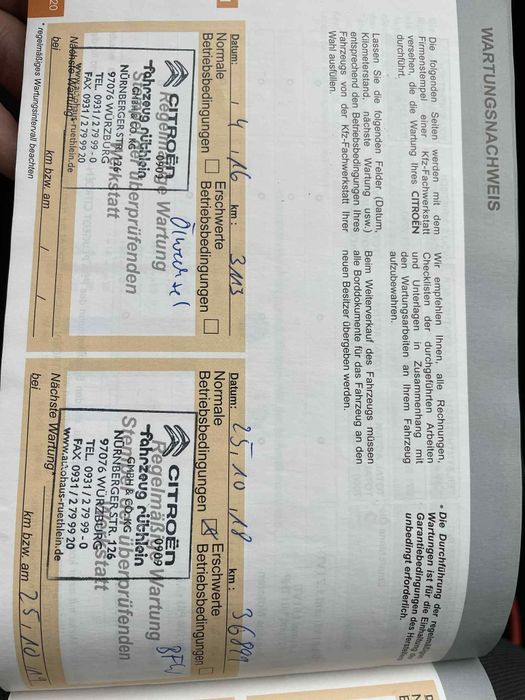 WARTUNGSNACHWEIS
Die folgenden Seiten werden mit dem
Firmenstempel einer Kfz-Fachwerkstatt
versehen, die die Wartung Ihres CITROËN
durchführt.
Lassen Sie die folgenden Felder (Datum,
Kilometerstand, nächste Wartung usw.)
entsprechend den Betriebsbedingungen Ihres
Fahrzeugs von der Kfz-Fachwerkstatt Ihrer
Wahl ausfüllen.
Wir empfehlen Ihnen, alle Rechnungen,
Checklisten der durchgeführten Arbeiten
und Unterlagen in Zusammenhang mit
den Wartungsarbeiten an Ihrem Fahrzeug
aufzubewahren.
Beim Weiterverkauf des Fahrzeugs müssen
alle Borddokumente für das Fahrzeug an den
neuen Besitzer übergeben werden.
• Die Durchführung der
Wartungen ist für die Einhaltung
Garantiebedingungen des
unbedingt erforderlich.
Datum: / 4 / 16 km: 3113
Normale Betriebsbedingungen
Erschwerte Betriebsbedingungen
Regelmäßige Wartung
Ölwechsel
Stempel der überprüfenden
Werkstatt
CITROËN
0909
Fahrzeug rüthlein
GMBH & CO. KG
NÜRNBERGER STR. 126
97076 WÜRZBURG
TEL. 0931 / 2 79 99 - 0
FAX 0931 / 2 79 99 20
www.autohaus-ruethlein.de
Nächste Wartung*
bei km bzw. am / /
* regelmäßiges Wartungsintervall beachten
20
Datum: 25, 10, 18 km: 36911
Normale Betriebsbedingungen
Erschwerte Betriebsbedingungen
Regelmäßige Wartung
Stempel der überprüfenden
Werkstatt
CITROËN
0909
Fahrzeug rüthlein
GMBH & CO. KG
NÜRNBERGER STR. 126
97076 WÜRZBURG
TEL. 0931 / 2 79 99 - 0
FAX 0931 / 2 79 99 20
www.autohaus-ruethlein.de
Nächste Wartung*
bei km bzw. am 25, 10 19